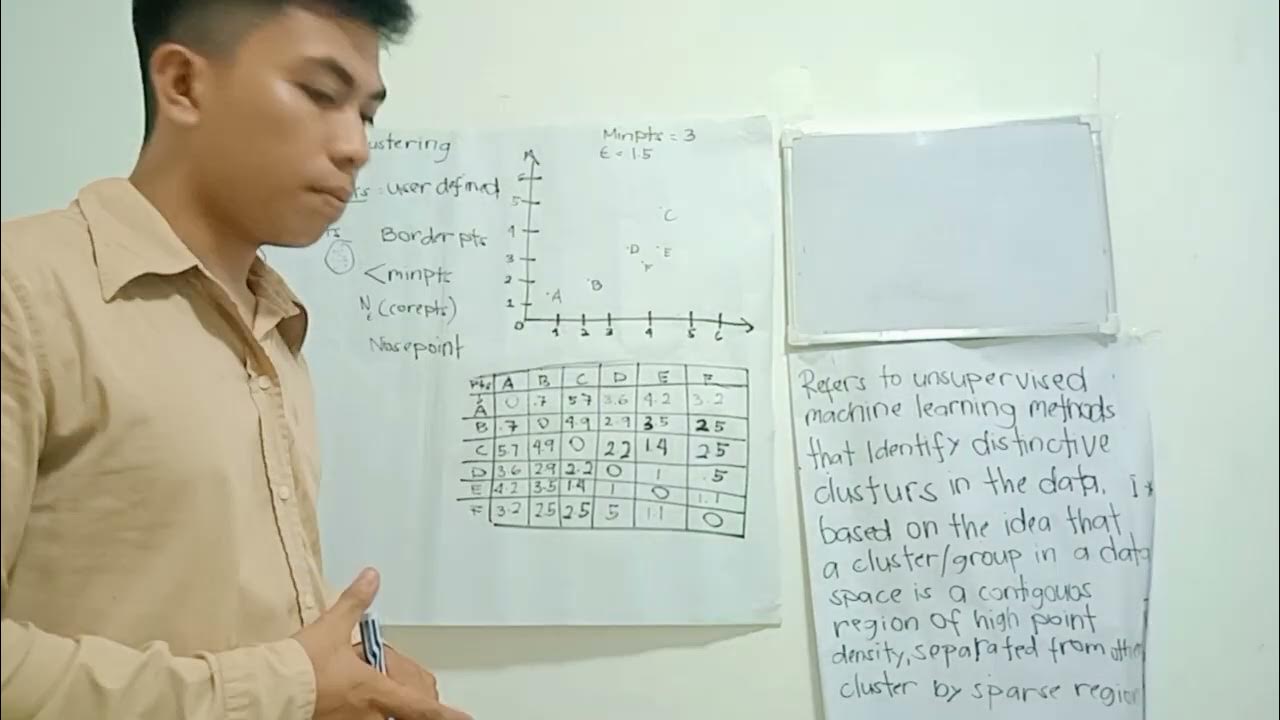 ustering
Minpts = 3
ε = 1.5
rs = user defined
Border pts
<minpts
Nε (corepts)
Nosepoint
6
5
4
3
2
1
0
C
D
E
F
B
A
1 2 3 4 5 6
Pts A B C D E F
A 0 .7 5.7 3.6 4.2 3.2
B .7 0 4.9 2.9 3.5 25
C 5.7 4.9 0 2.2 1.4 25
D 3.6 29 2.2 0 1 .5
E 4.2 3.5 1.4 1 0 1.1
F 3.2 25 2.5 5 1.1 0
Refers to unsupervised
machine learning methods
that Identify distinctive
clusturs in the data.
based on the idea that
a cluster/group in a data
space is a contigouos
region of high point
density, separated from
cluster by sparse region